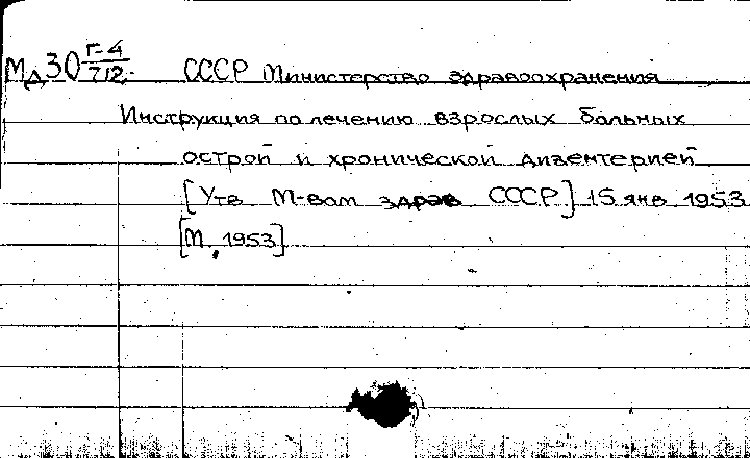 Мд30 Г-4/712. СССР Министерство здравоохранения
Инструкция по лечению взрослых больных
острой и хронической дизентерией
[Утв. М-вом здрав СССР] 15 янв 1953
[М., 1953]